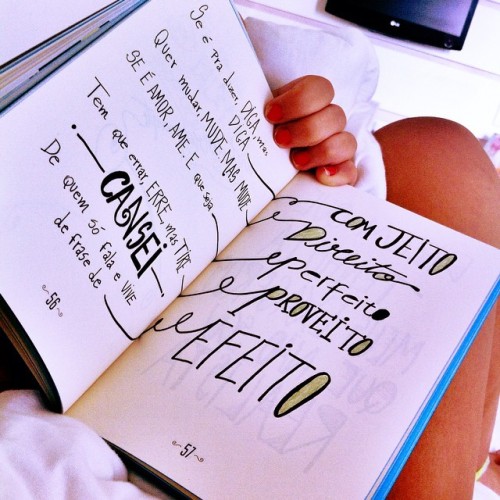 Se é pra dizer, DIGA, mas
DIGA
Quer mudar, MUDE, MAS MUDE
SE É AMOR, AME. E que seja
Tem que errar, ERRE, mas TIRE
CANSEI
De quem só fala e VIVE
de frase de
56
COM JEITO
Direito
perfeito
PROVEITO
EFEITO
57